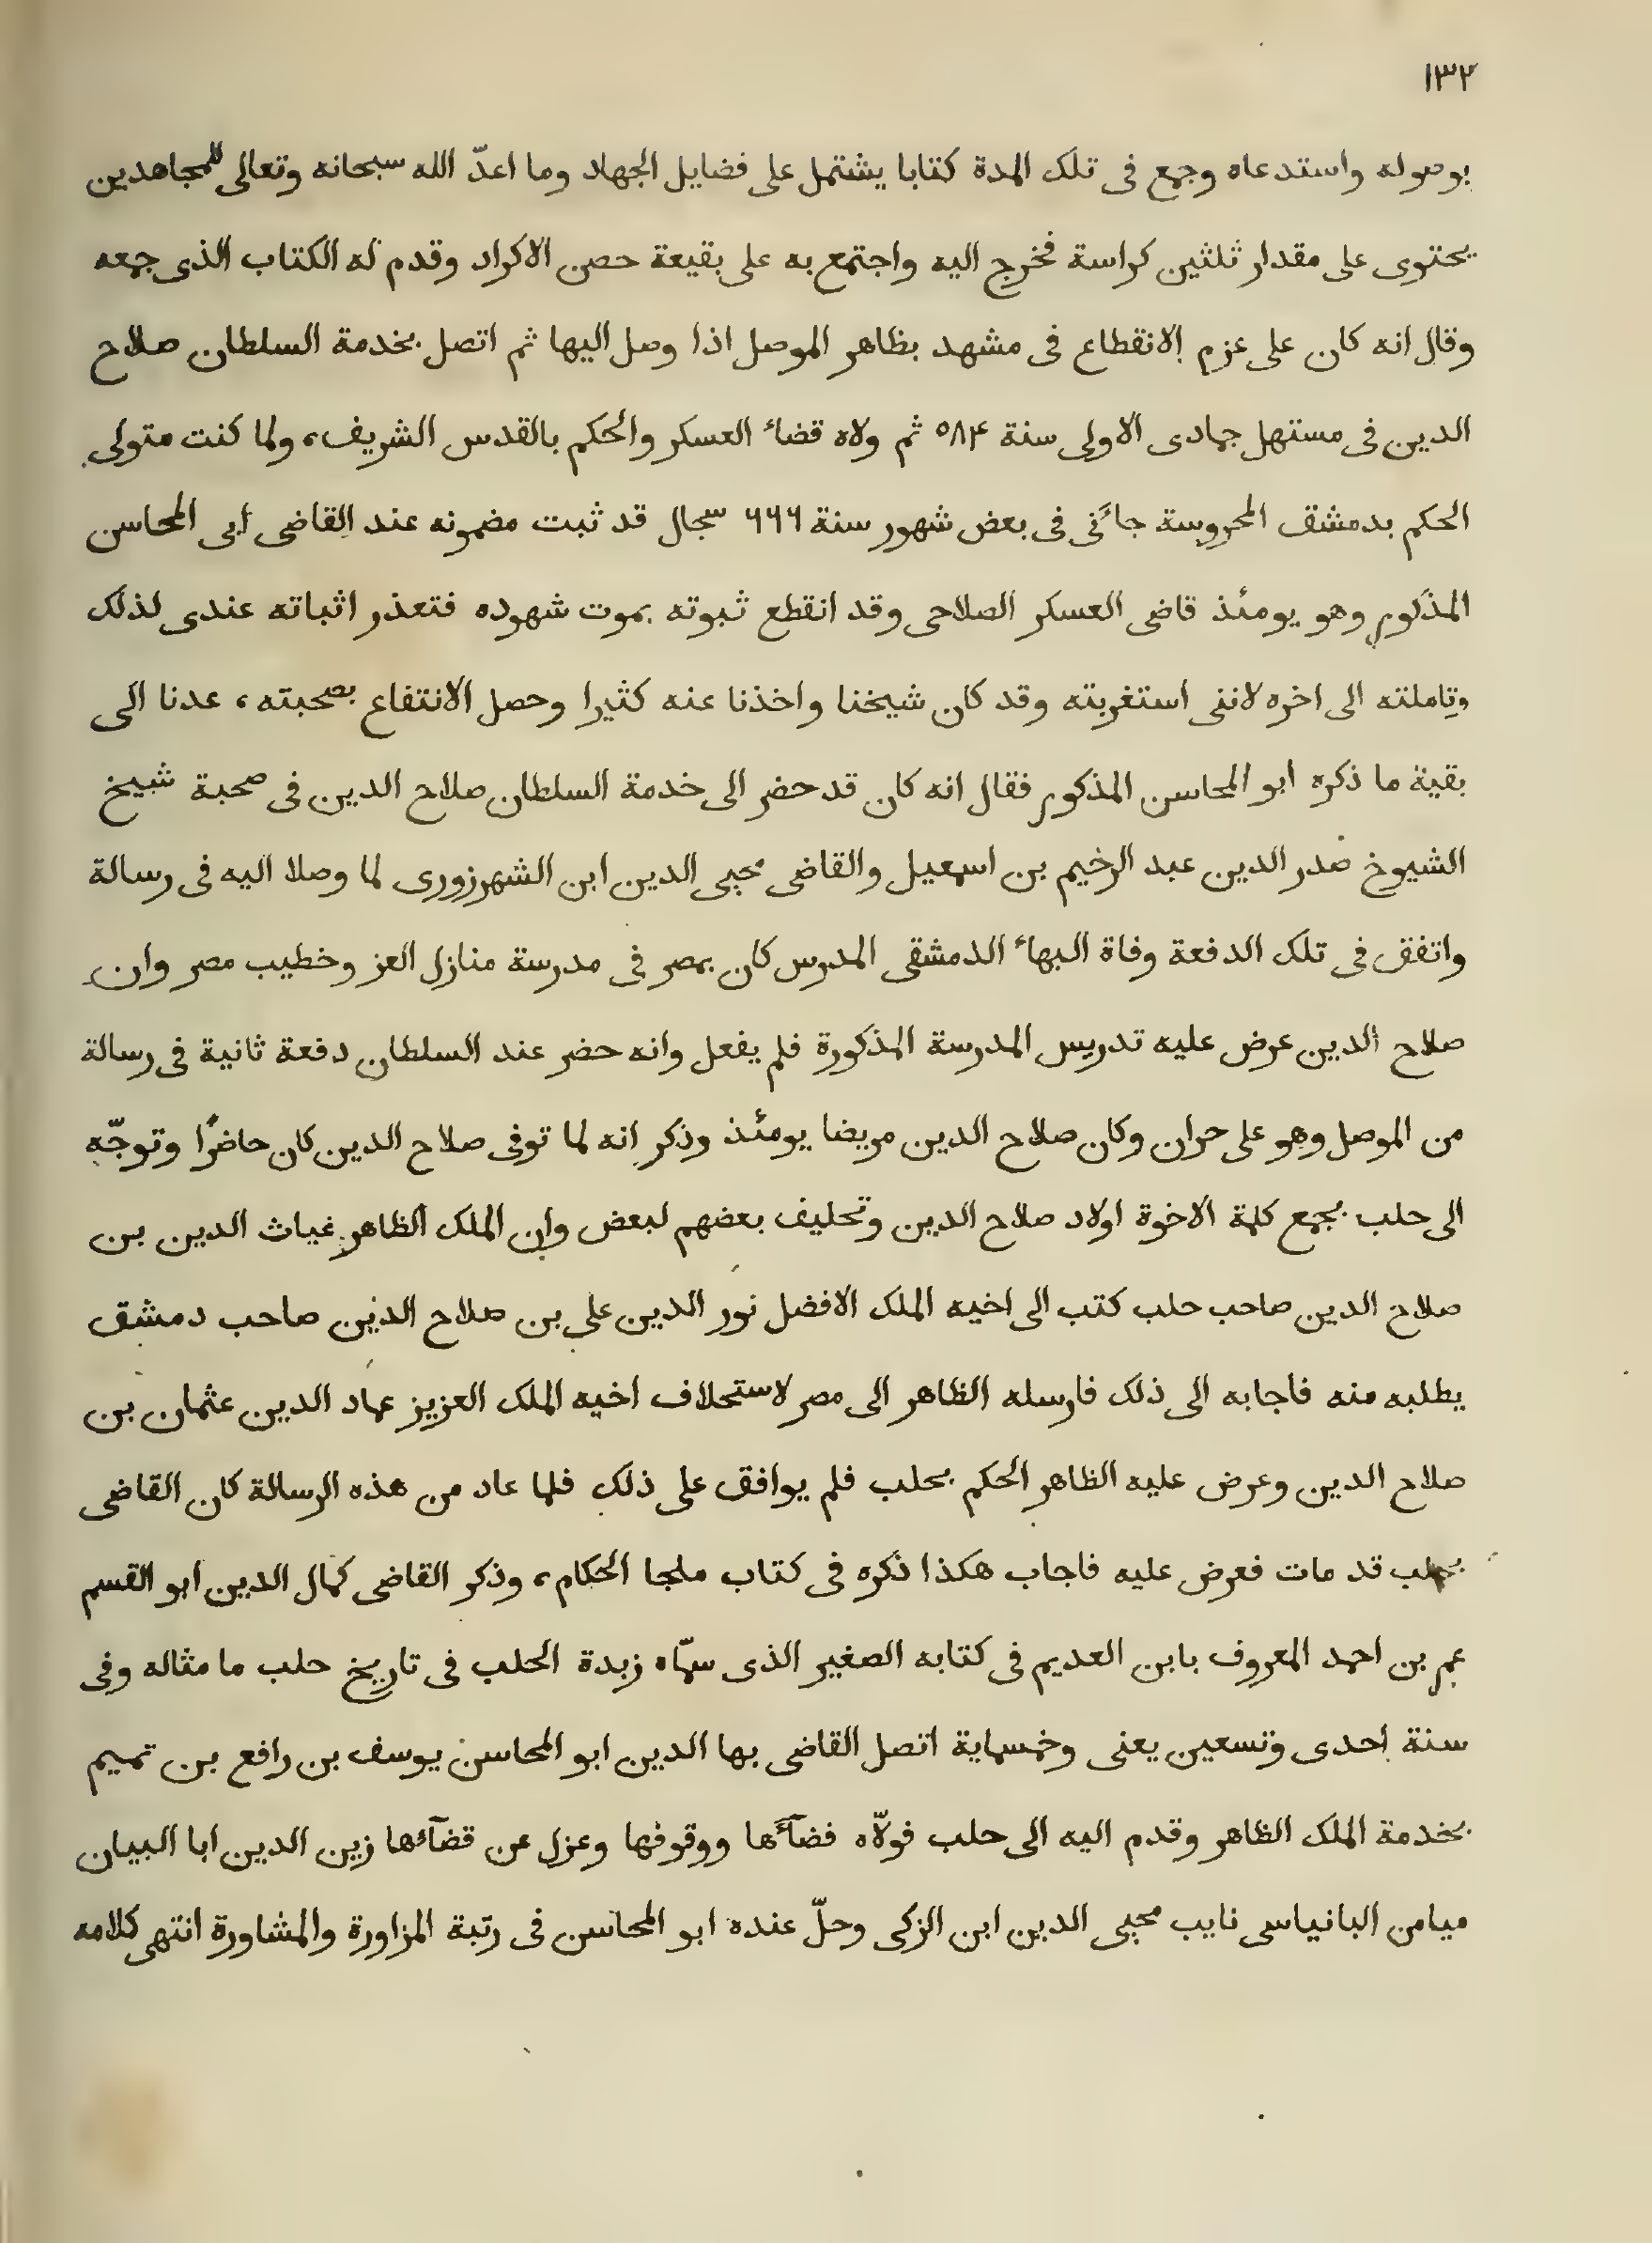 ١٣٢
بوصوله واستدعاه وجمع فى تلك المدة كتابا يشتمل على فضايل الجهاد وما اعدّ الله سبحانه وتعالى للمجاهدين
يحتوى على مقدار ثلثين كراسة فخرج اليه واجتمع به على بقيعة حصن الاكراد وقدم له الكتاب الذى جمعه
وقال انه كان على عزم الانقطاع فى مشهد بظاهر الموصل اذا وصل اليها ثم اتصل بخدمة السلطان صلاح
الدين فى مستهل جمادى الاولى سنة ٥٨٤ ثم ولاه قضاء العسكر والحكم بالقدس الشريف، ولما كنت متولى
الحكم بدمشق المحروسة جاءنى فى بعض شهور سنة ٦٦٦ سجال قد ثبت مضمونه عند القاضى ابى المحاسن
المذكور وهو يومئذ قاضى العسكر الصلاحى وقد انقطع ثبوته بموت شهوده فتعذر اثباته عندى لذلك
وتاملته الى اخره لاننى استغربته وقد كان شيخنا واخذنا عنه كثيرا وحصل الانتفاع بصحبته، عدنا الى
بقية ما ذكره ابو المحاسن المذكور فقال انه كان قد حضر الى خدمة السلطان صلاح الدين فى صحبة شيخ
الشيوخ صدر الدين عبد الرحيم بن اسمعيل والقاضى محيى الدين ابن الشهرزورى لما وصلا اليه فى رسالة
واتفق فى تلك الدفعة وفاة البهاء الدمشقى المدرس كان بمصر فى مدرسة منازل العز وخطيب مصر وان
صلاح الدين عرض عليه تدريس المدرسة المذكورة فلم يفعل وانه حضر عند السلطان دفعة ثانية فى رسالة
من الموصل وهو على حران وكان صلاح الدين مريضا يومئذ وذكر انه لما توفى صلاح الدين كان حاضرًا وتوجّه
الى حلب بجمع كلمة الاخوة اولاد صلاح الدين وتحليف بعضهم لبعض وان الملك الظاهر غياث الدين بن
صلاح الدين صاحب حلب كتب الى اخيه الملك الافضل نور الدين على بن صلاح الدين صاحب دمشق
يطلبه منه فاجابه الى ذلك فارسله الظاهر الى مصر لاستحلاف اخيه الملك العزيز عماد الدين عثمان بن
صلاح الدين وعرض عليه الظاهر الحكم بحلب فلم يوافق على ذلك فلما عاد من هذه الرسالة كان القاضى
بحلب قد مات فعرض عليه فاجاب هكذا ذكره فى كتاب ملجا الحكام، وذكر القاضى كمال الدين ابو القسم
عمر بن احمد المعروف بابن العديم فى كتابه الصغير الذى سمّاه زبدة الحلب فى تاريخ حلب ما مثاله وفى
سنة احدى وتسعين يعنى وخمسماية اتصل القاضى بها الدين ابو المحاسن يوسف بن رافع بن تميم
بخدمة الملك الظاهر وقدم اليه الى حلب فولّاه قضآءها ووقوفها وعزل عن قضآئها زين الدين ابا البيان
ميامن البانياسى نايب محيى الدين ابن الزكى وحلّ عنده ابو المحاسن فى رتبة المزاورة والمشاورة انتهى كلامه